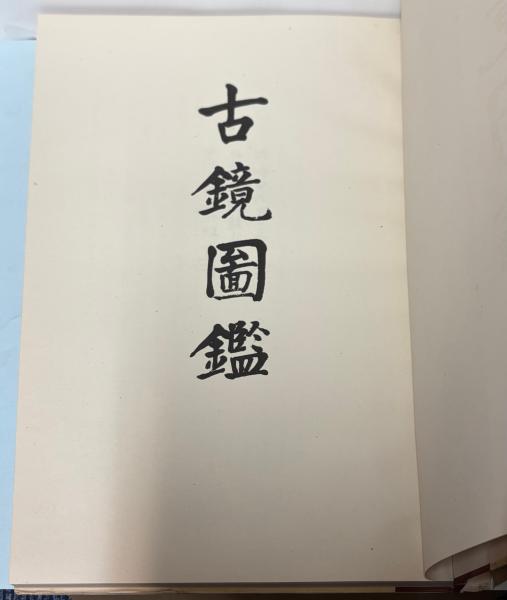 古鏡圖鑑